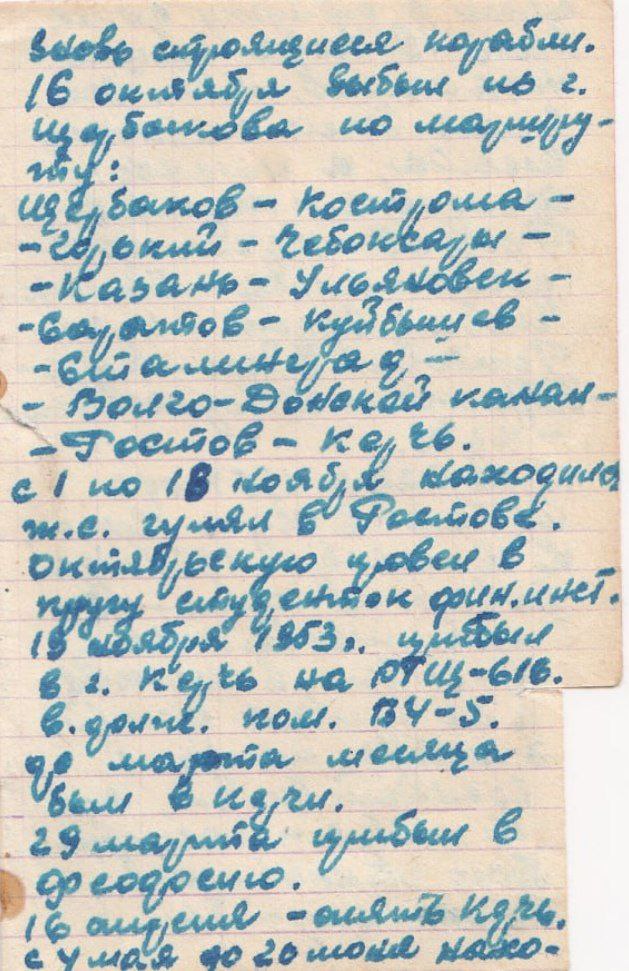 вновь строящиеся корабли.
16 октября выбыл из г.
Щербакова по маршру-
ту:
Щербаков - Кострома -
- Горький - Чебоксары -
- Казань - Ульяновск -
- Саратов - Куйбышев -
- Сталинград -
- Волго-Донской канал -
- Ростов - Керчь.
с 1 по 18 ноября находился
т.е. гулял в Ростове.
Октябрьскую провел в
кругу студенток фин.инст.
19 ноября 1953г. прибыл
в г. Керчь на РТЩ-616.
в. долж. ком. БЧ-5.
до марта месяца
был в Керчи.
29 марта прибыл в
Феодосию.
16 апреля - опять Керчь.
с 4 мая до 20 июня нахо-